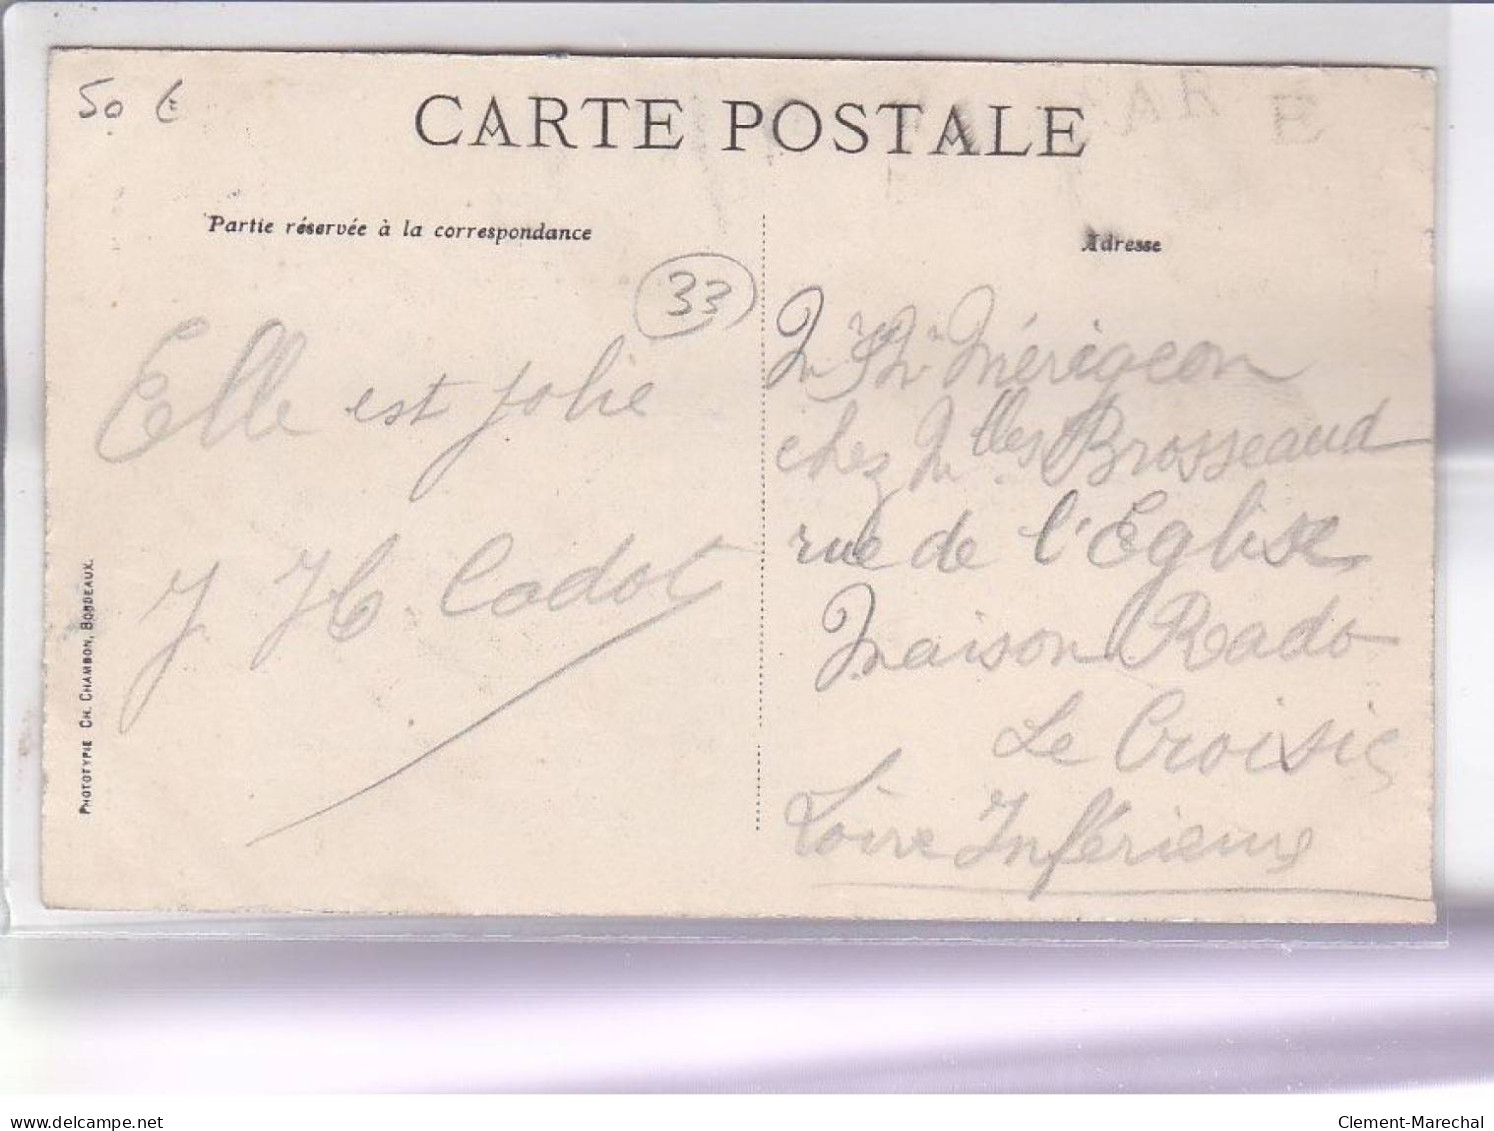 50 €
CARTE POSTALE
Partie réservée à la correspondance
Adresse
33
Elle est jolie
J. H. Cadot
PHOTOTYPIE CH. CHAMBON, BORDEAUX.
Mérigeon
chez Mlles Brosseaud
rue de l'Eglise
Maison Rado
Le Croisic
Loire Inférieure
www.delcampe.net
Clement-Marechal